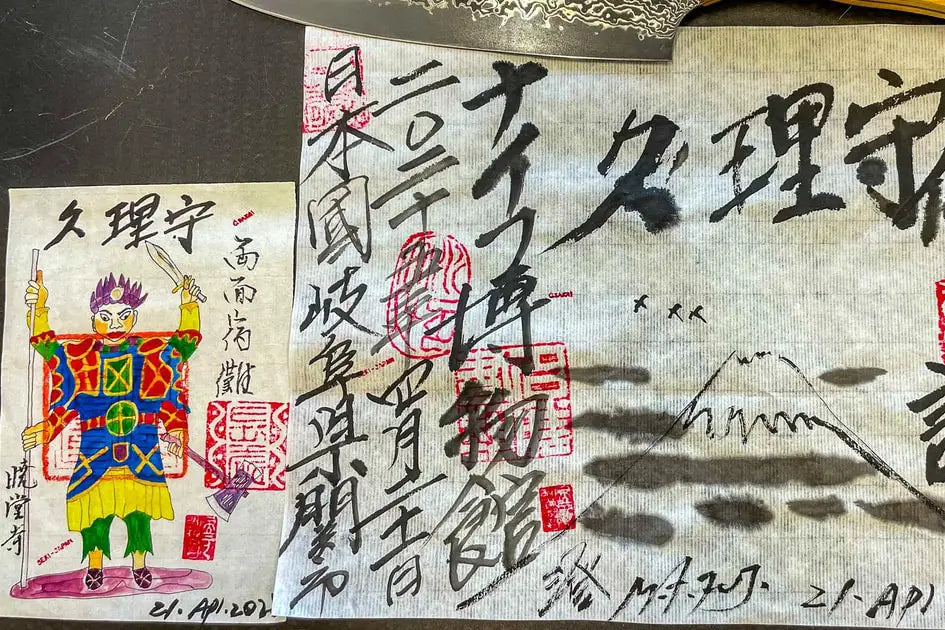 久理守
G.SAKAI
両面宿儺
暁堂寺
SEKI-JAPAN
21. API. 202
久理守
ナイフ博物館
G.SAKAI
二〇二十五年四月二十一日
日本國岐阜県関市
21. API